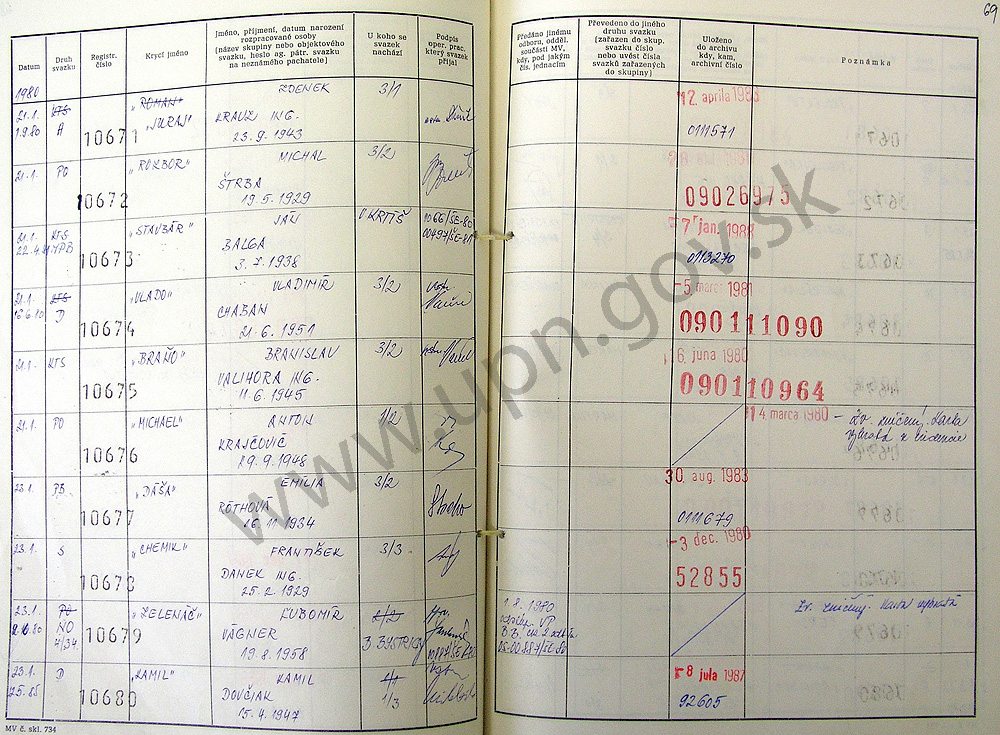 69
Datum
Druh svazku
Registr. číslo
Krycí jméno
Jméno, příjmení, datum narození
rozpracované osoby
(název skupiny nebo objektového
svazku, heslo ag. pátr. svazku
na neznámého pachatele)
U koho se
svazek
nachází
Podpis
oper. prac.
který svazek
přijal
Předáno jinému
odboru, odděl.
součásti MV,
kdy, pod jakým
čís. jednacím
Převedeno do jiného
druhu svazku
(zařazen do skup.
svazku číslo
nebo uvést čísla
svazků zařazených
do skupiny)
Uloženo
do archivu
kdy, kam,
archivní číslo
Poznámka
1980
21.1. KTS "ROMAN" ZDENEK 3/1
1.9.80 A 10671 "JURAJ" KRAUZ ING.
23.9.1943
12. apríla 1988
0111571
21.1. PO 10672 "ROZBOR" MICHAL 3/2
ŠTRBA
19.5.1929
09026975
21.1. KTS "STAVBÁR" JÁN V. KRTÍŠ 1066/ŠE-80
10673 BALGA 00497/ŠE-81
3.7.1938
7 jan. 1988
0113270
21.1. KTS "VLADO" VLADIMÍR 3/2
16.6.80 D 10674 CHABAN
21.6.1951
-5 marca 1981
090111090
21.1. KTS "BRAŇO" BRANISLAV 3/2
10675 VALIHORA ING.
11.6.1945
6. júna 1980
090110964
21.1. PO "MICHAEL" ANTON 1/2
10676 KRAJČOVIČ
29.9.1948
14 marca 1980 – Zv. zničený. Karta
vybratá z evidencie
23.1. PB "DÁŠA" EMILIA 3/2
10677 RÓTHOVÁ
16.11.1934
30 aug. 1983
0111679
23.1. S "CHEMIK" FRANTIŠEK 3/3
10678 DANEK ING.
25.2.1929
-3 dec. 1980
52855
23.1. PO "ZELENÁČ" ĽUBOMÍR 2/2
NO 10679 VÁGNER B. BYSTRICA
4/34. 19.8.1958
1.8.1980
Zv. zničený. Karta vybratá
23.1. D "KAMIL" KAMIL
10680 DOVČIAK 1/3
15.4.1947
8 júla 1987
92605
MV č. skl. 734
www.upn.gov.sk